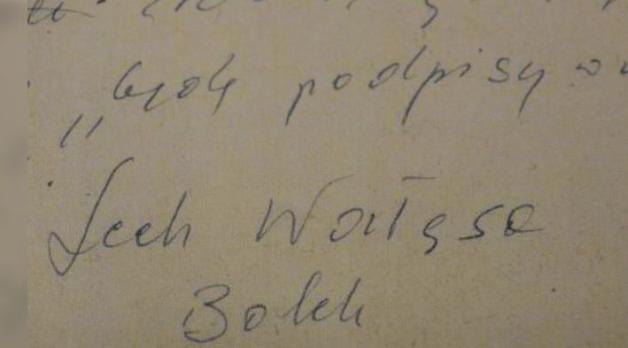 „będę podpisyw
Lech Wałęsa
Bolek